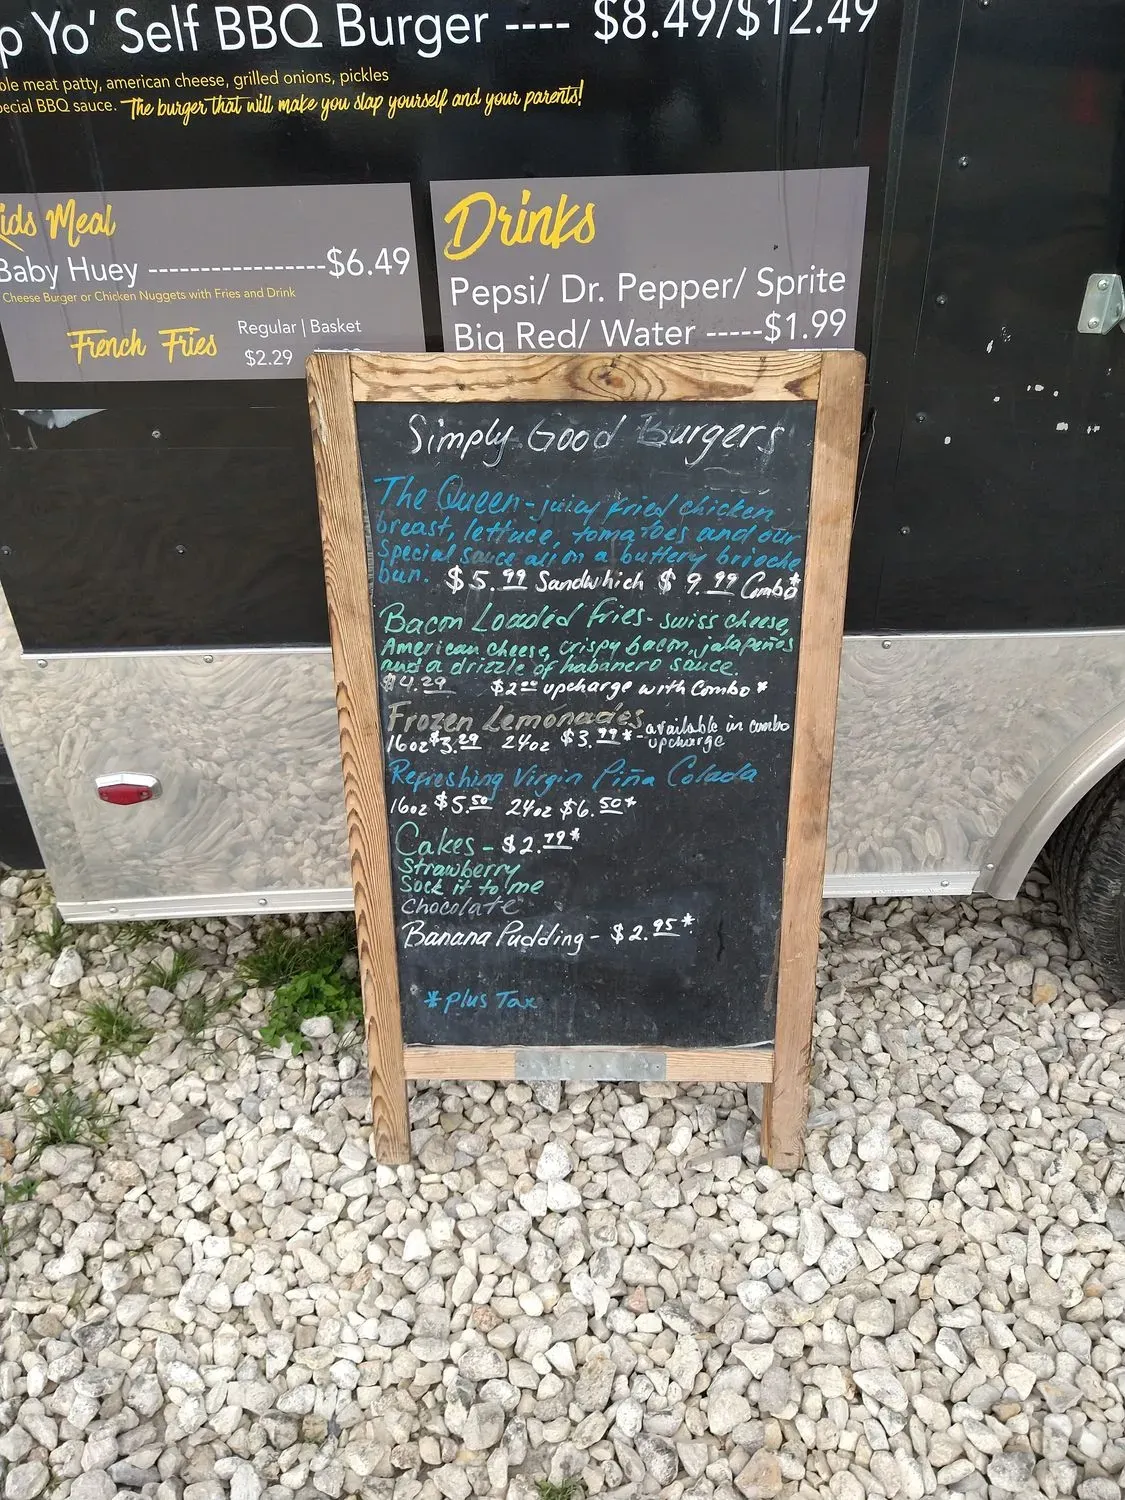 Yo' Self BBQ Burger ---- $8.49/$12.49
meat patty, american cheese, grilled onions, pickles
BBQ sauce. The burger that will make you slap yourself and your parents!
Meal
Baby Huey -----------------$6.49
Cheese Burger or Chicken Nuggets with Fries and Drink
French Fries
Regular | Basket
$2.29
Drinks
Pepsi/ Dr. Pepper/ Sprite
Big Red/ Water -----$1.99
Simply Good Burgers
The Queen - juicy fried chicken
breast, lettuce, tomatoes and our
special sauce all on a buttery brioche
bun. $5.99 Sandwhich $9.99 Combo*
Bacon Loaded Fries - swiss cheese,
American cheese, crispy bacon, jalapeños
and a drizzle of habanero sauce.
$4.29 $2.00 upcharge with Combo*
Frozen Lemonades - available in combo
16oz $3.29 24oz $3.99* upcharge
Refreshing Virgin Piña Colada
16oz $5.50 24oz $6.50*
Cakes - $2.79*
Strawberry
Sock it to me
Chocolate
Banana Pudding - $2.95*
*plus Tax